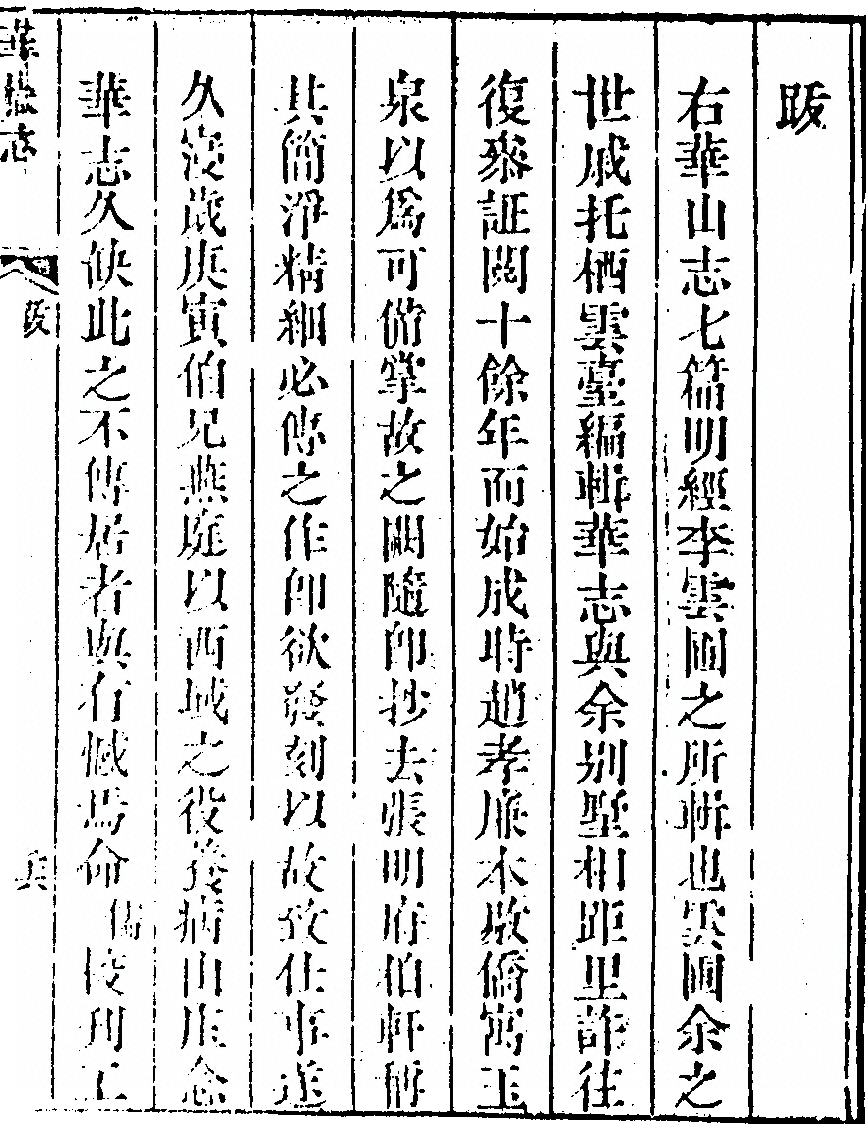 跋
右華山志七篇明經李雲圃之所輯也雲圃余之
世戚托栖雲臺編輯華志與余別墅相距里許往
復叅証閱十餘年而始成時趙孝廉木欣僑寓玉
泉以為可備掌故之闕隨即抄去張明府伯軒稱
其簡淨精細必傳之作即欲發刻以故致仕事遂
久寢歲庚寅伯兄燕庭以西域之役養病山庄念
華志久缺此之不傳居者與有憾焉命儒校刊工
華嶽志
跋